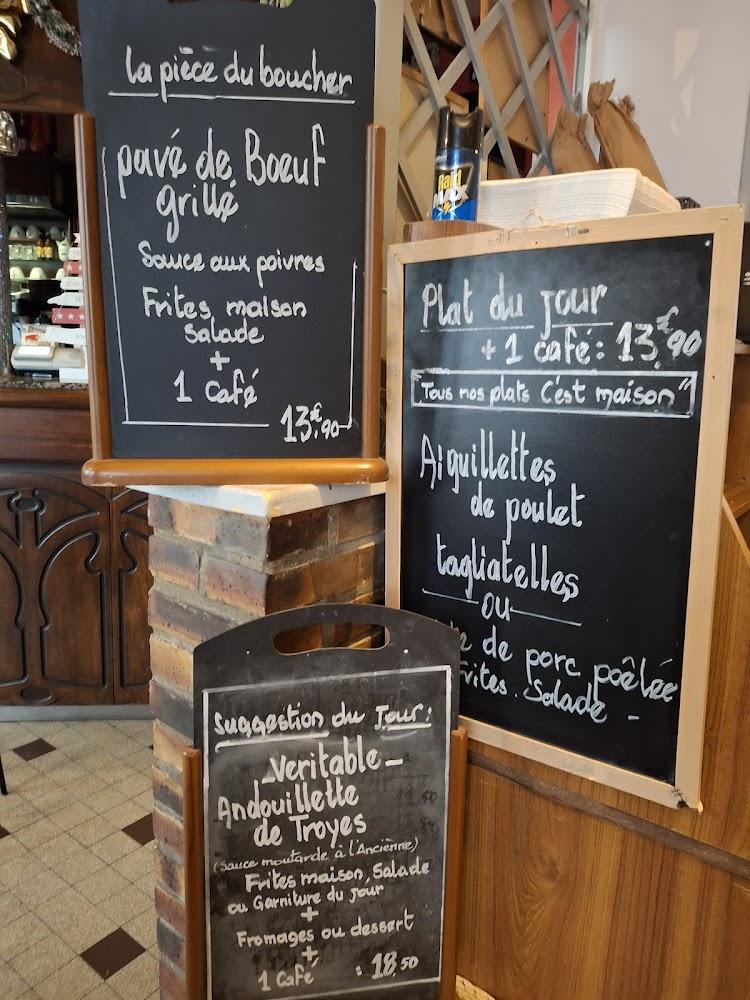 La pièce du boucher
pavé de Boeuf
grillé
Sauce aux poivres
Frites maison
Salade
+
1 Café
13€.90
Raid
MAX
Plat du jour
+ 1 café : 13€.90
"Tous nos plats C'est maison"
Aiguillettes
de poulet
tagliatelles
ou
de porc poêlée
Frites. Salade -
Suggestion du Jour :
Veritable
Andouillette
de Troyes
(Sauce moutarde à l'Ancienne)
Frites maison, Salade
ou Garniture du jour
+
Fromages ou dessert
+
1 Café : 18,50